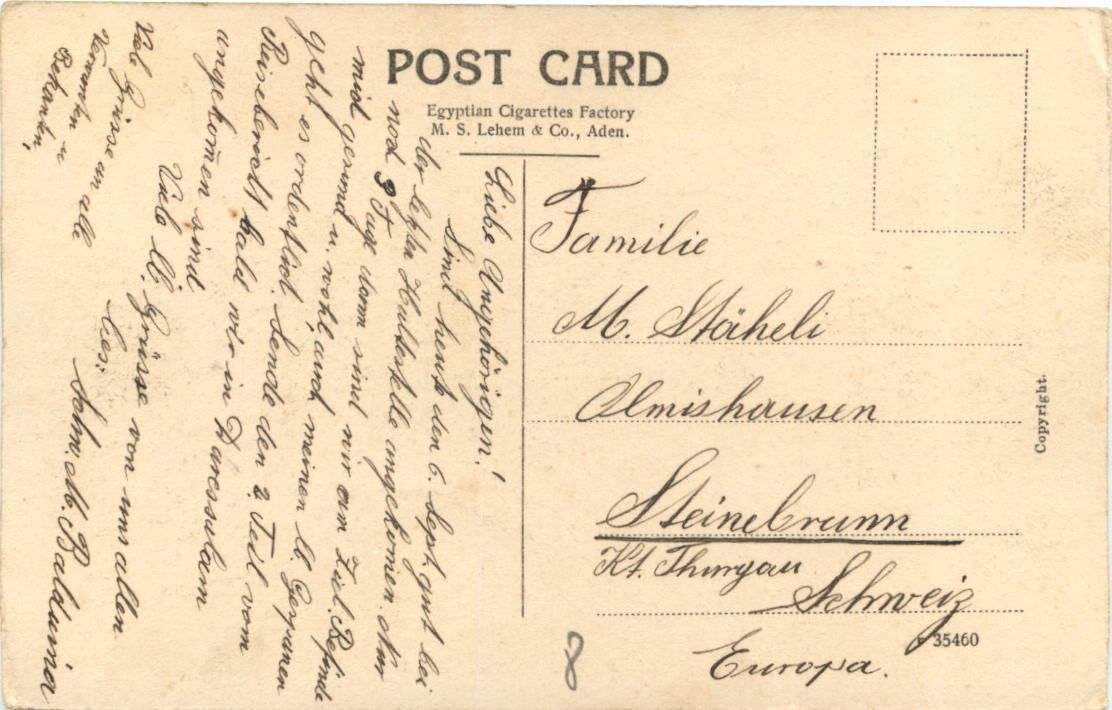 POST CARD
Egyptian Cigarettes Factory
M. S. Lehem & Co., Aden.
Liebe Angehörigen!
Sind heute den 6. Sept. gut bei
der letzten Haltestelle angekomen. Nur
noch 3 Tage dann sind wir am Ziel. Befinde
mich gesund u. wohl, auch meinen lb.
geht es ordentlich. Sende den 2. Teil vom
Reisebericht bald wir in Daressalam
angekomen sind.
Viele lb. Grüsse von uns allen
Schw. M. Balduina
Viele Grüsse an alle
Verwanten u
Bekanten,
Familie
M. Stäheli
Olmishausen
Steinebrunn
Kt. Thurgau
Schweiz
Europa.
35460
Copyright.
8